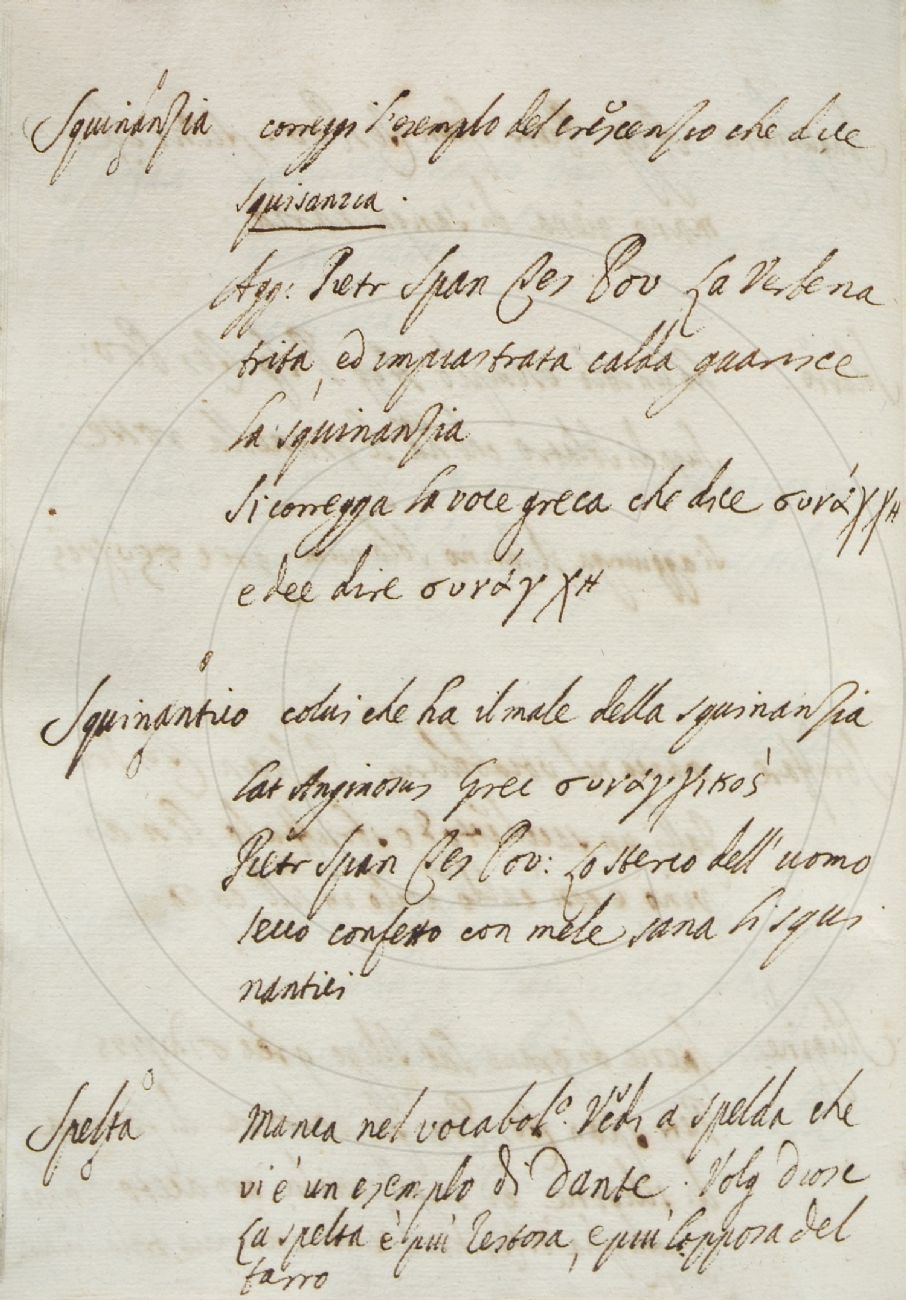 Squinanzia correggi l'esemplo del Crescenzio che dice
squisanzia.
Agg: Pietr Span Tes Pov La Verbena
trita, ed impiastrata calda guarisce
la squinanzia
Si corregga la voce greca che dice συνάγγη
e dee dire συνάγχη
Squinantico colui che ha il male della squinanzia
Lat Anginosus Grec συναγχικός
Pietr Span Tes Pov: Lo sterco dell'uomo
secco confetto con mele sana li squi
nantici
Spelta Manca nel vocabol.o Vedi a spelda che
vi è un esemplo di Dante. Volg Diosc
La spelta è più restosa, e più lopposa del
farro